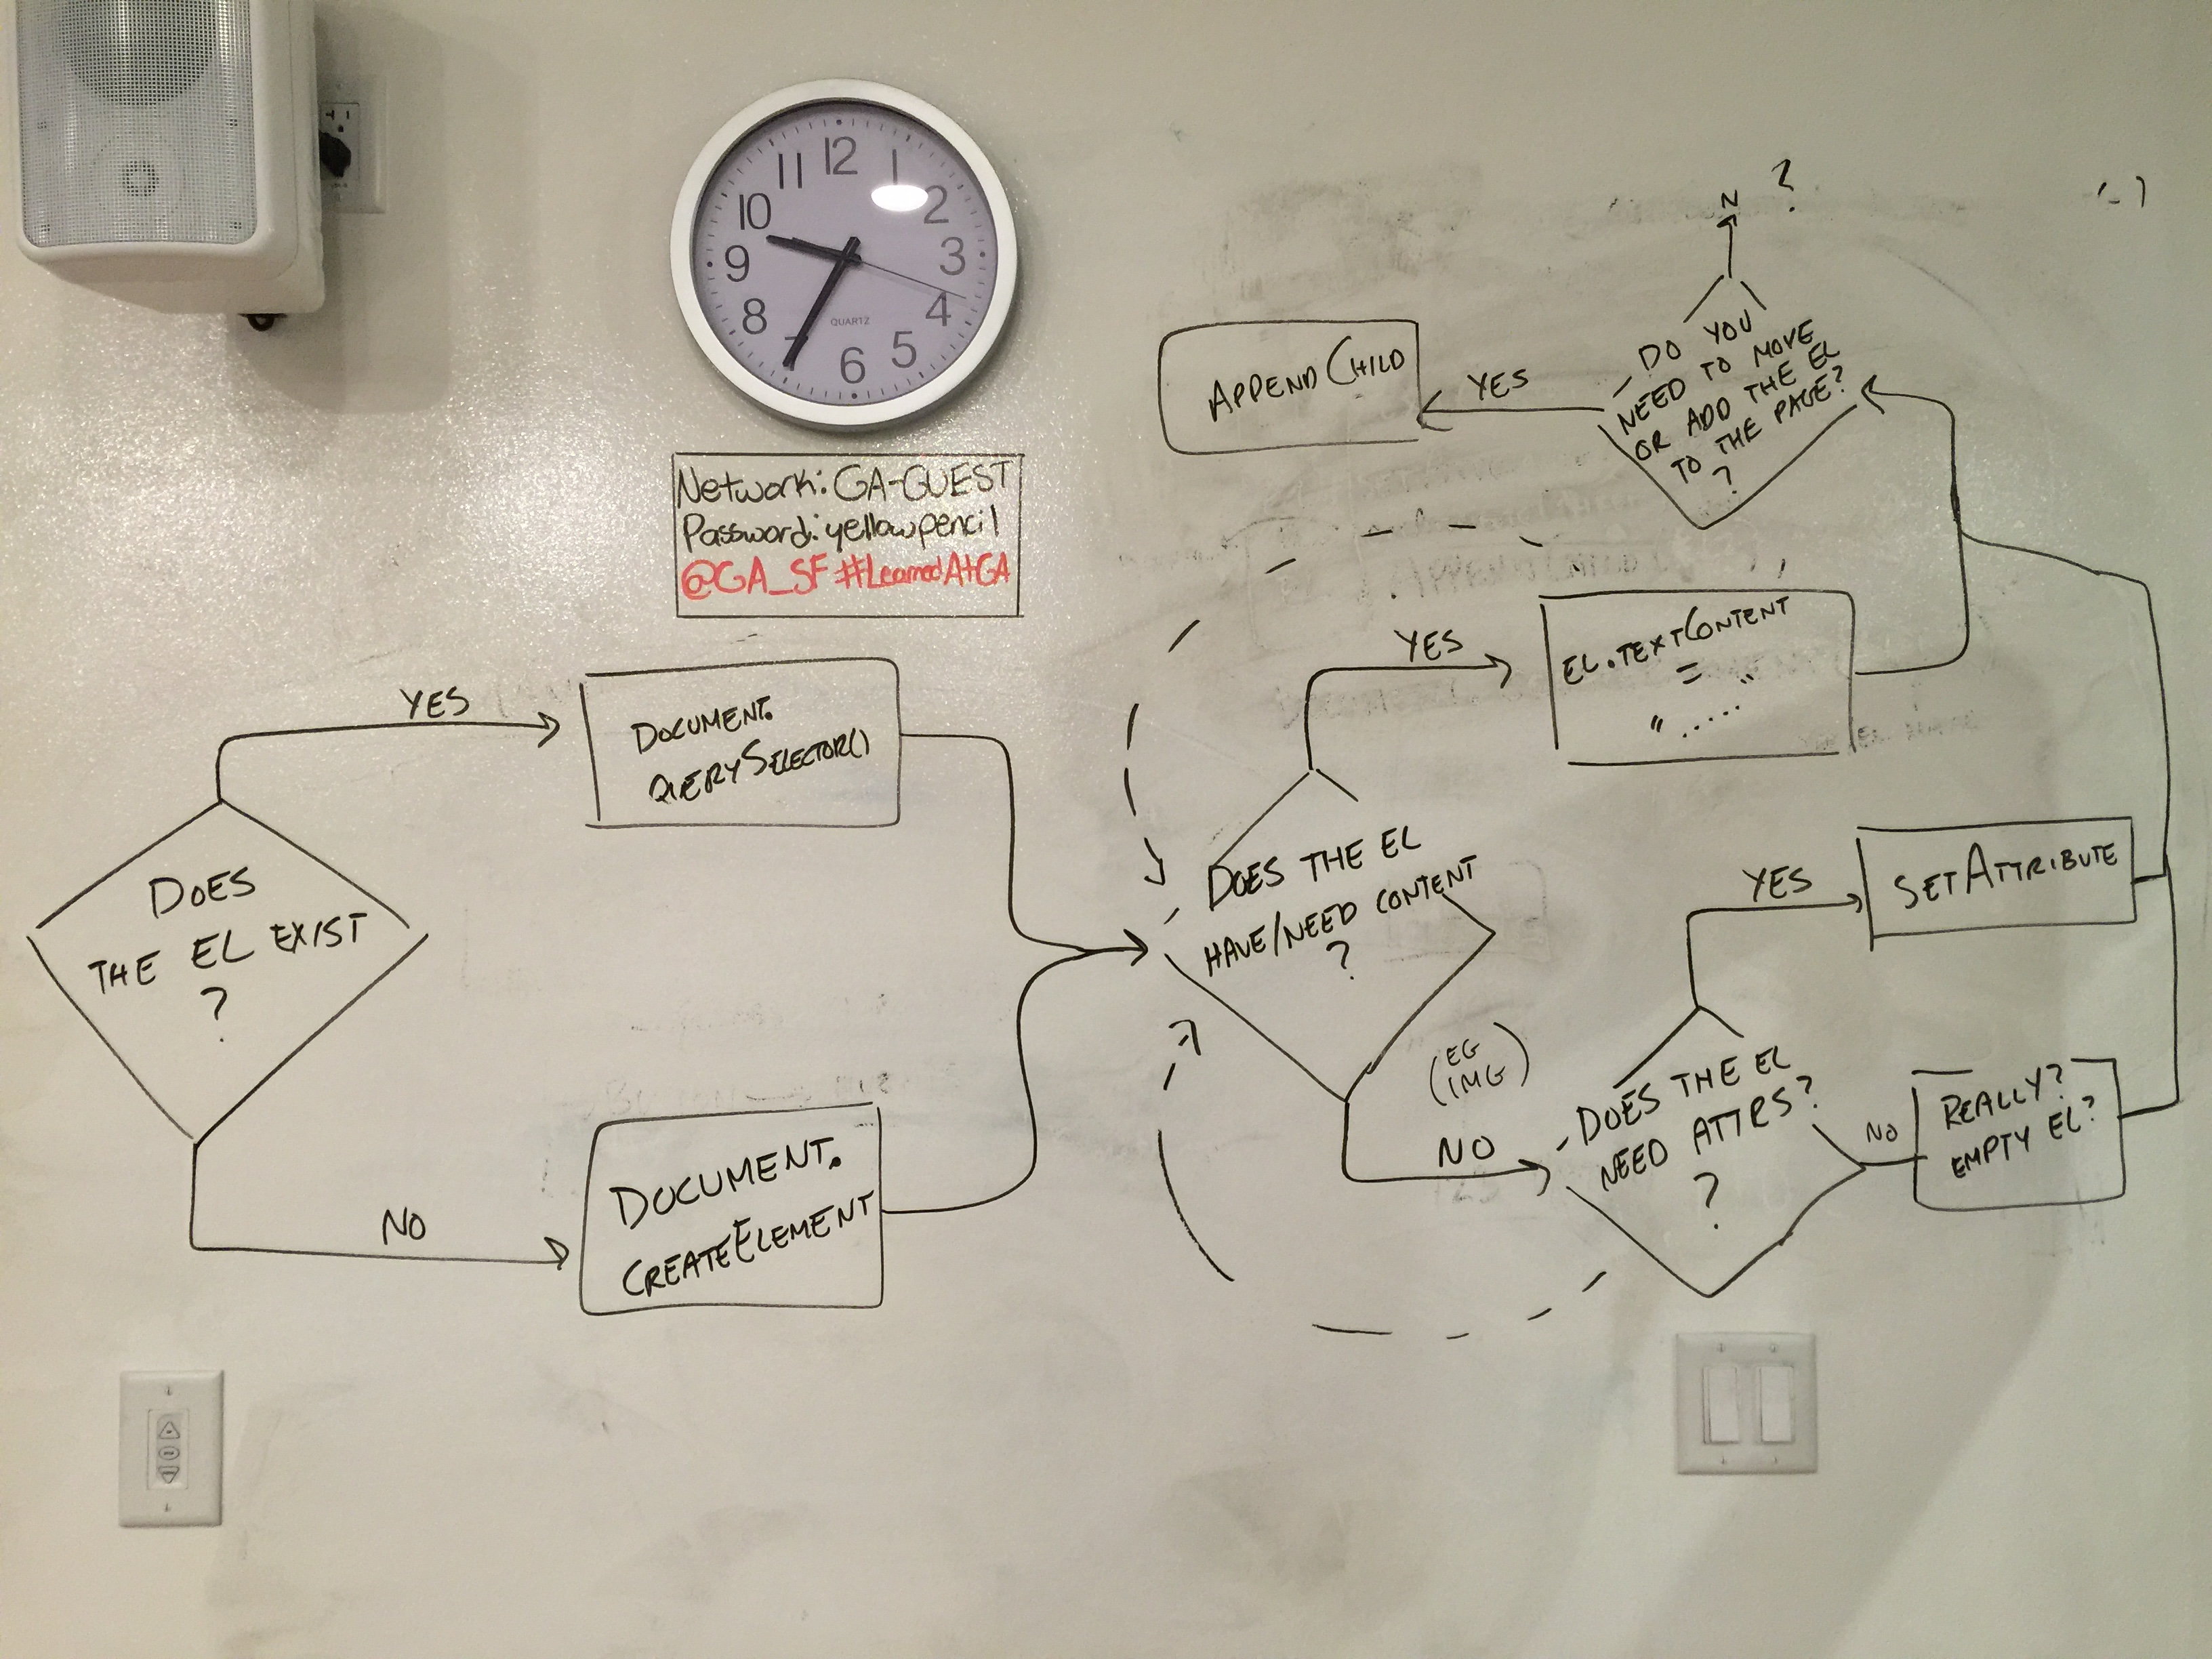 12
1
2
3
4
5
6
7
8
9
10
11
QUARTZ
Network: GA-GUEST
Password: yellowpencil
@GA_SF #LearnedAtGA
DOES
THE EL EXIST
?
YES
DOCUMENT.
QUERYSELECTOR()
NO
DOCUMENT.
CREATEELEMENT
DOES THE EL
HAVE/NEED CONTENT
?
YES
EL.TEXTCONTENT
=
"....."
(EG
IMG)
NO
DOES THE EL
NEED ATTRS?
?
YES
SETATTRIBUTE
NO
REALLY?
EMPTY EL?
DO YOU
NEED TO MOVE
OR ADD THE EL
TO THE PAGE?
?
N ?
YES
APPENDCHILD